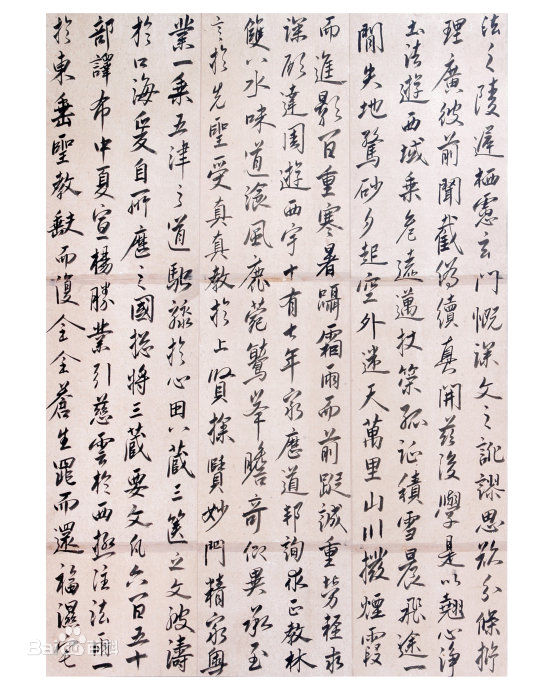 法之陵遲栖慮玄門慨深文之訛謬思欲分條析
理廣彼前聞截偽續真開茲後學是以翹心淨
土法遊西域乘危遠邁杖策孤征積雪晨飛途一
閒失地驚砂夕起空外迷天萬里山川撥煙霞
而進影百重寒暑躡霜雨而前蹤誠重勞輕求
深願達周遊西宇十有七年窮歷道邦詢求正教林
雙八水味道湌風鹿菀鷲峯瞻奇仰異承至
言於先聖受真真教於上賢探賾妙門精窮奧
業一乘五津之道馳驟於心田八藏三篋之文波濤
於口海爰自所歷之國總將三藏要文凡六百五十
部譯布中夏宣楊勝業引慈雲於西極注法雨一
於東垂聖教缺而復全全蒼生罪而還福濕火宅
Baidu百科